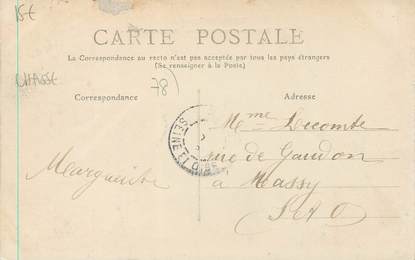 15€
CHASSE
78)
CARTE POSTALE
La Correspondance au recto n'est pas acceptée par tous les pays étrangers
(Se renseigner à la Poste)
Correspondance
Adresse
SEINE ET OISE
Mme Lecomte
rue de Gaudon
à Massy
S et O
Marguerite